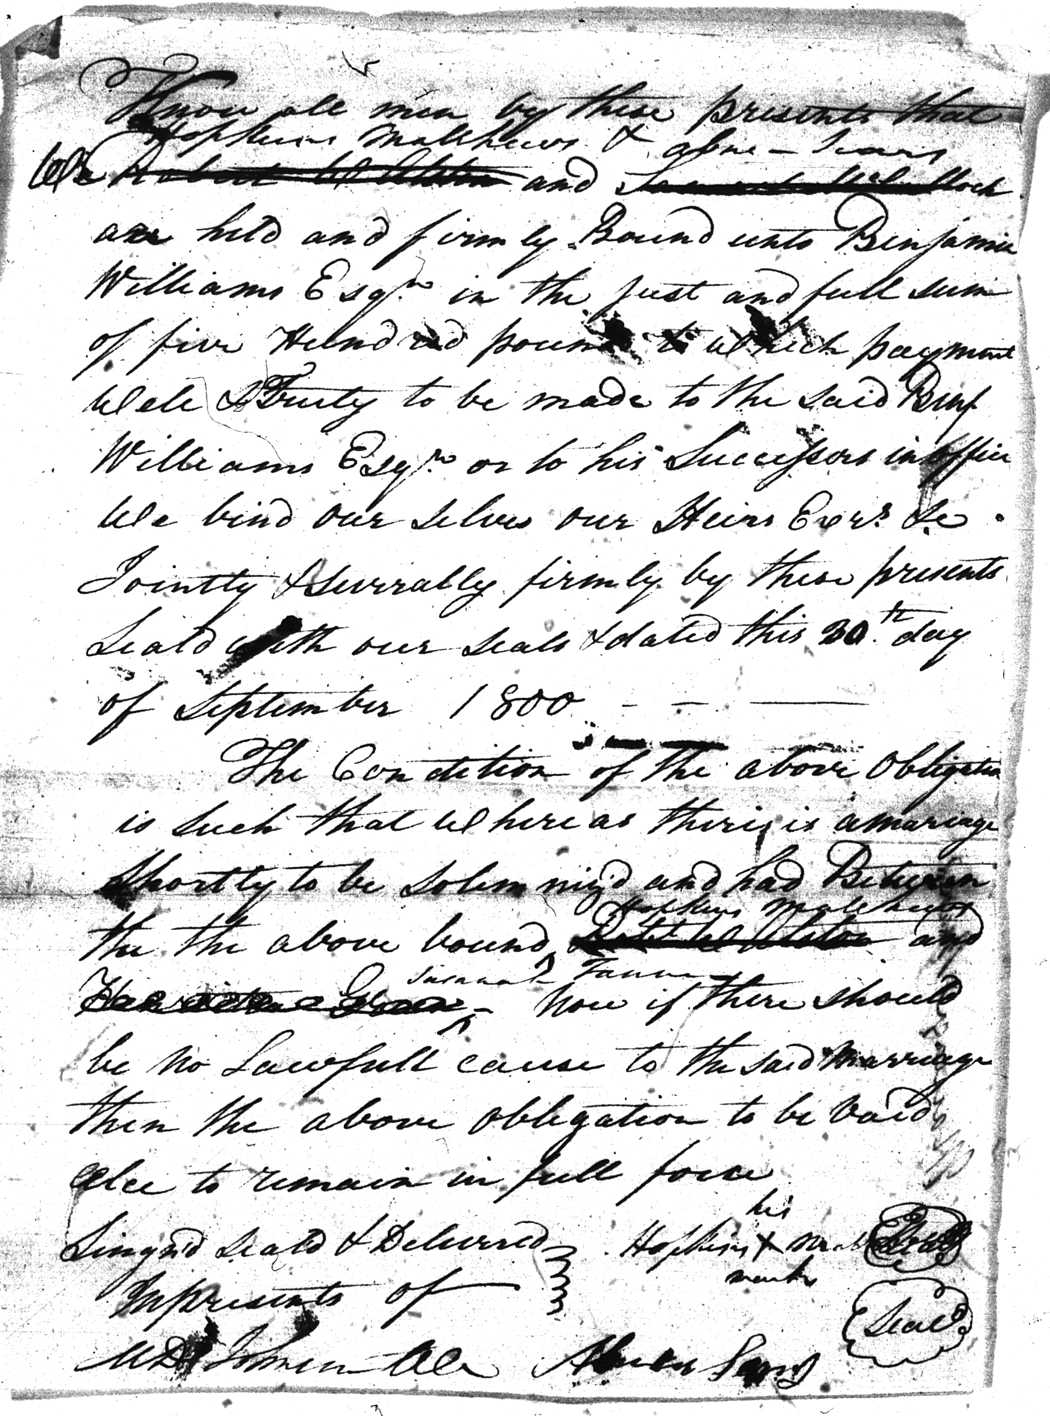 Know all men by these presents that
Hopkins Matthews & abne - Sears
We Robert W Alston and Samuel McCulloch
are held and firmly Bound unto Benjamin
Williams Esqr in the just and full sum
of five Hundred pounds to which payment
Well & Truely to be made to the said Benj
Williams Esqr or to his Successors in office
We bind our selves our Heirs Exers &c
Jointly & severally firmly by these presents
Seald with our seals & dated this 20th day
of September 1800
The Condition of the above Obligation
is such that Where as there is a marage
Shortly to be solemnizd and had Between
Hopkins Matthews
the the above bound Robt W Alston and
Susanah
- Now if there should
be no Lawfull cause to the said Marriage
then the above obligation to be Void
Elce to remain in full force
his
Singnd Seald & Deliverd Hopkins X Seal
mark
In presents of
Seal
Johnson